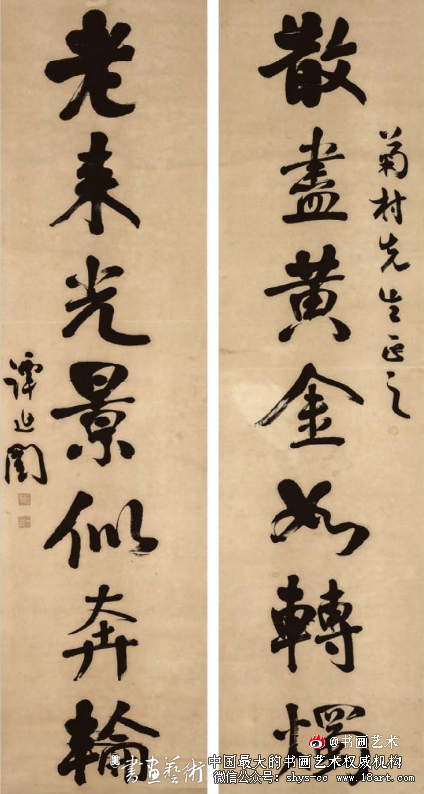 菊村先生正之
散盡黃金如轉
老来光景似奔輪
譚延闓
@书画艺术
書畫藝術
中国最大的书画艺术权威机构
微信公众号：shys-cc www.18art.com